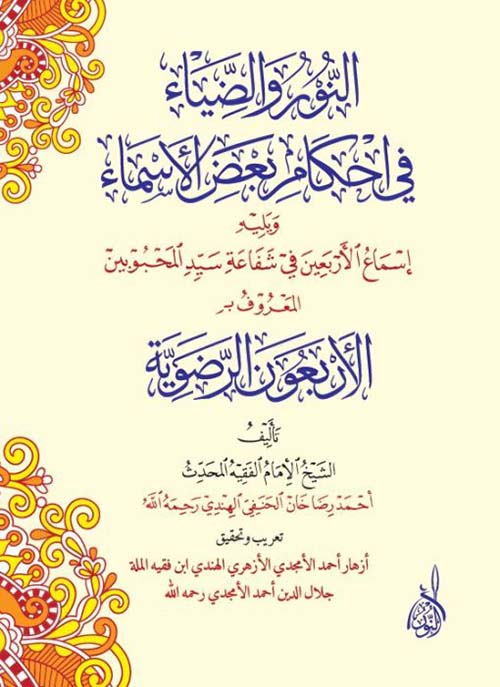 النُّورُ وَالضِّيَاءُ
فِي أَحْكَامِ بَعْضِ الْأَسْمَاءِ
وَيَلِيْهِ
إِسْمَاعُ الْأَرْبَعِيْنَ فِيْ شَفَاعَةِ سَيِّدِ الْمَحْبُوْبِيْنَ
المَعْرُوْفُ بـ
الْأَرْبَعُوْنَ الرَّضَوِيَّةُ
تَأْلِيْفُ
الشَّيْخُ الْإِمَامُ الْفَقِيْهُ الْمُحَدِّثُ
أَحْمَدْ رِضَا خَانْ الْحَنَفِيْ الْهِنْدِيْ رَحِمَهُ اللهُ
تعريب وتحقيق
أزهار أحمد الأمجدي الأزهري الهندي ابن فقيه الملة
جلال الدين أحمد الأمجدي رحمه الله
النور